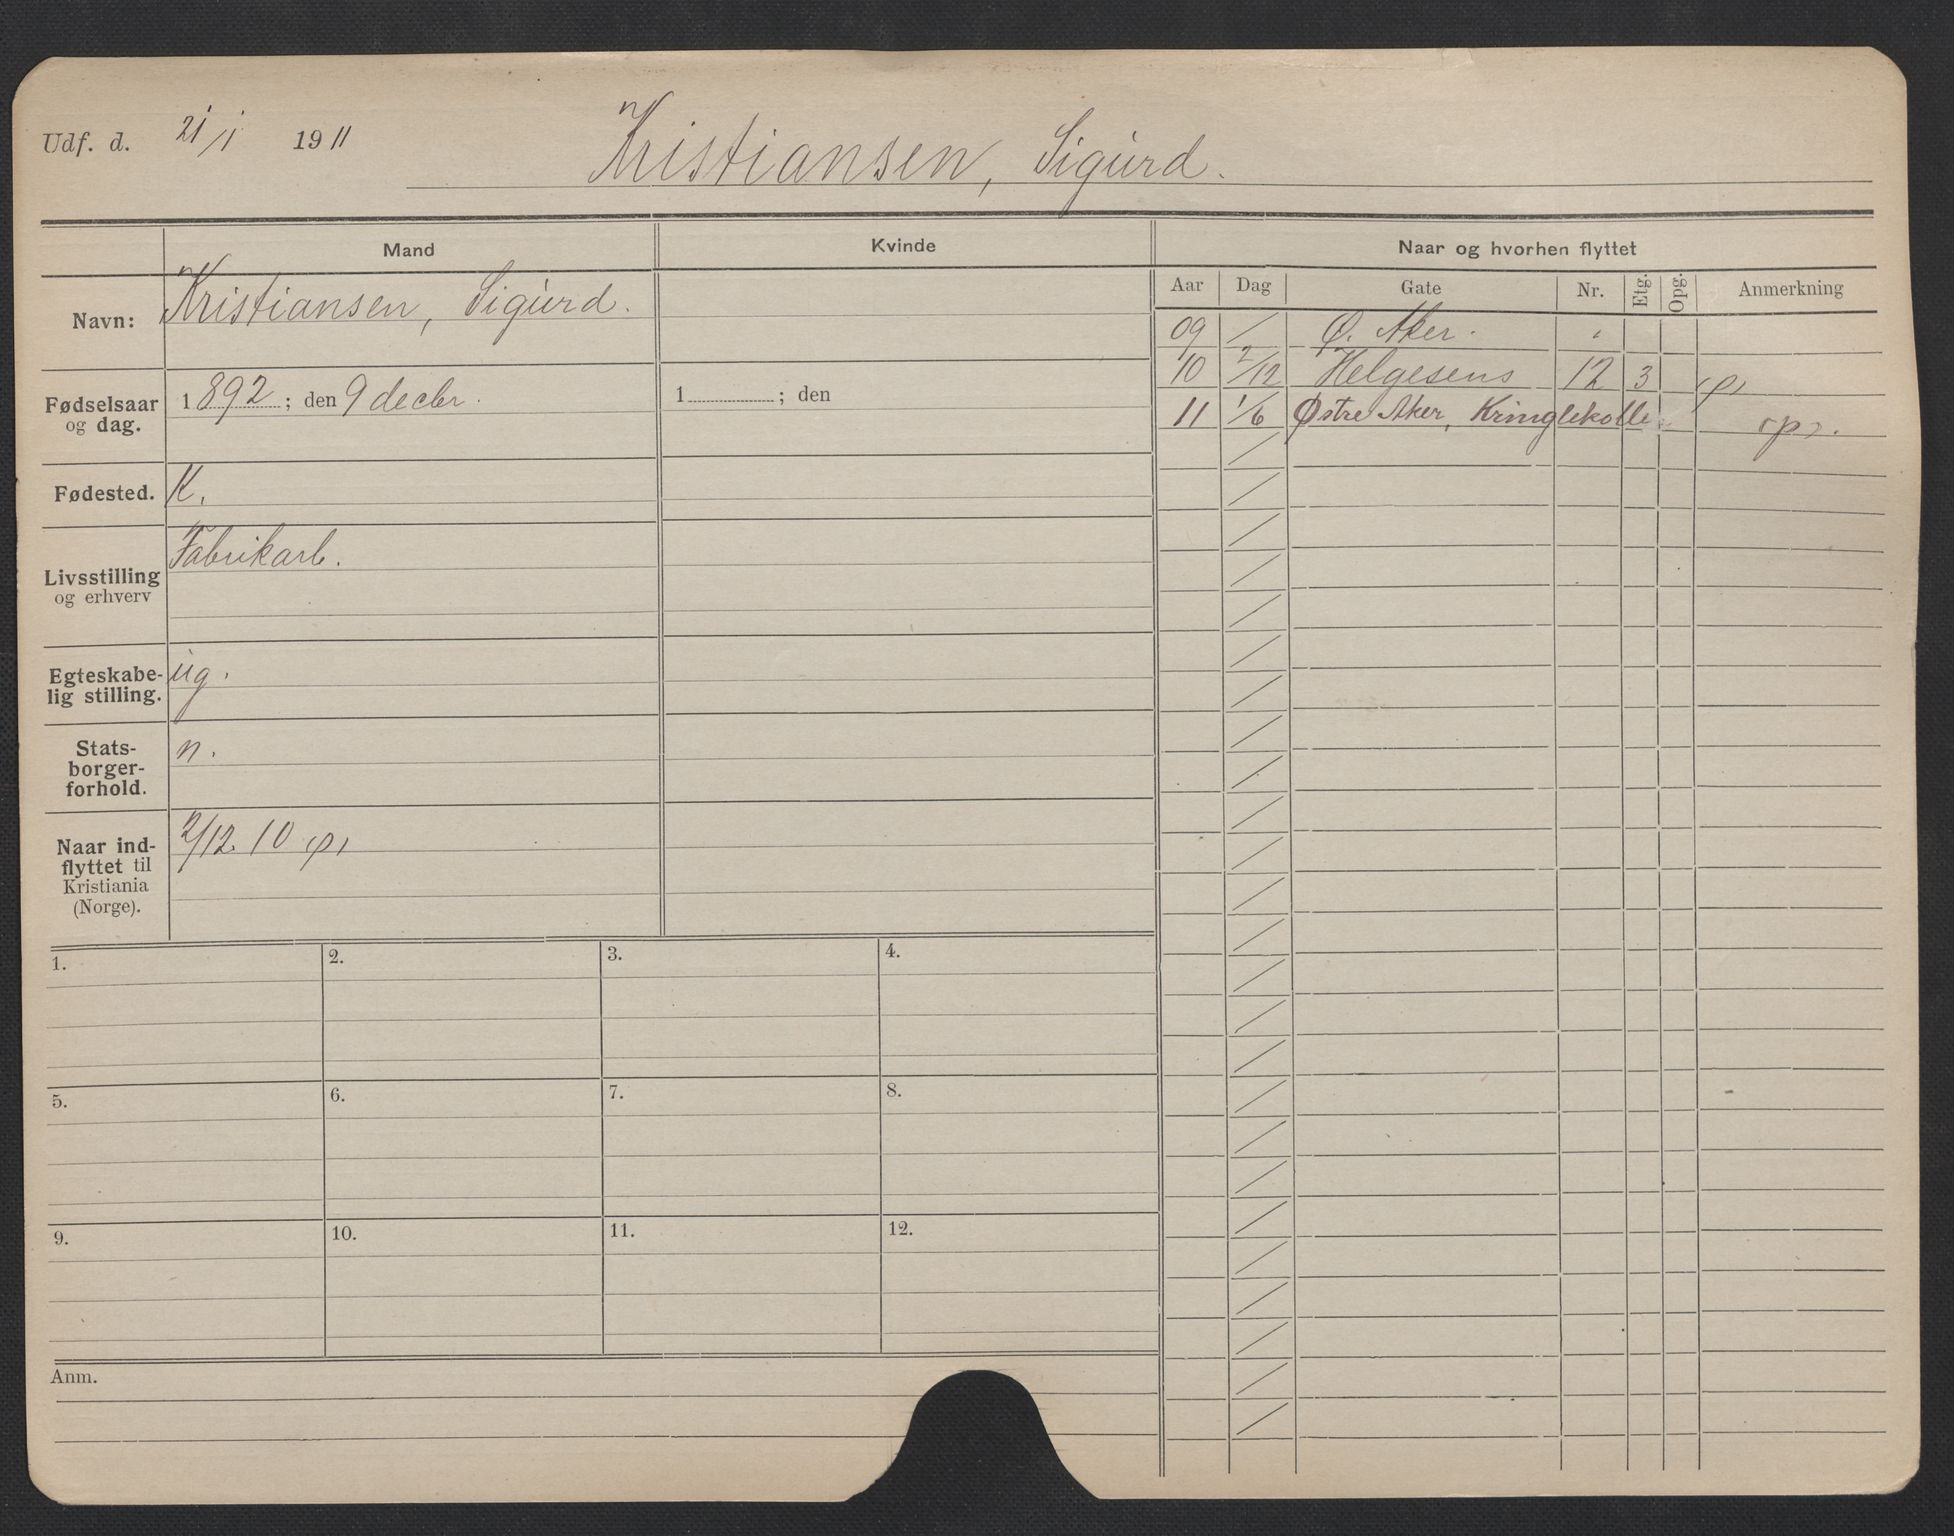 Udf. d. 21/1 1911 Kristiansen, Sigurd.
Mand Kvinde Naar og hvorhen flyttet
Aar Dag Gate Nr. Etg. Opg. Anmerkning
Navn: Kristiansen, Sigurd.
Fødselsaar og dag. 1892; den 9 decbr. 1 ; den
Fødested. K.
Livsstilling og erhverv Fabrikarb.
Egteskabe-
lig stilling. ug.
Stats-
borger-
forhold. n.
Naar ind-
flyttet til
Kristiania
(Norge). 2/12. 10 (p)
09 / Ø. Aker.
10 2/12 Helgesens 12 3 (p)
11 1/6 Østre Aker, Kringlekolle (p).
1. 2. 3. 4.
5. 6. 7. 8.
9. 10. 11. 12.
Anm.